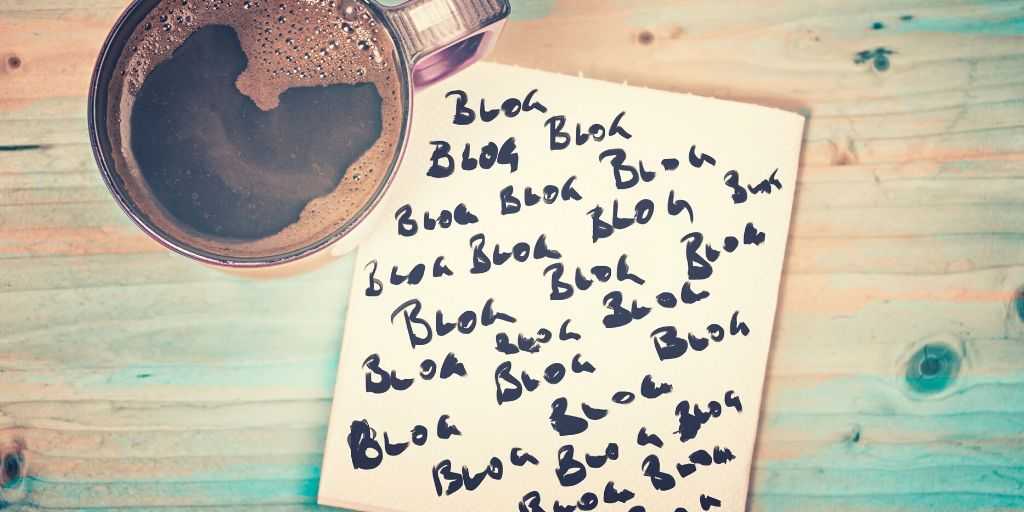 BLOG
BLOG BLOG
BLOG BLOG BLOG
BLOG BLOG BLOG BLOG
BLOG BLOG
BLOG BLOG BLOG
BLOG BLOG BLOG
BLOG BLOG
BLOG BLOG BLOG
BLOG BLOG